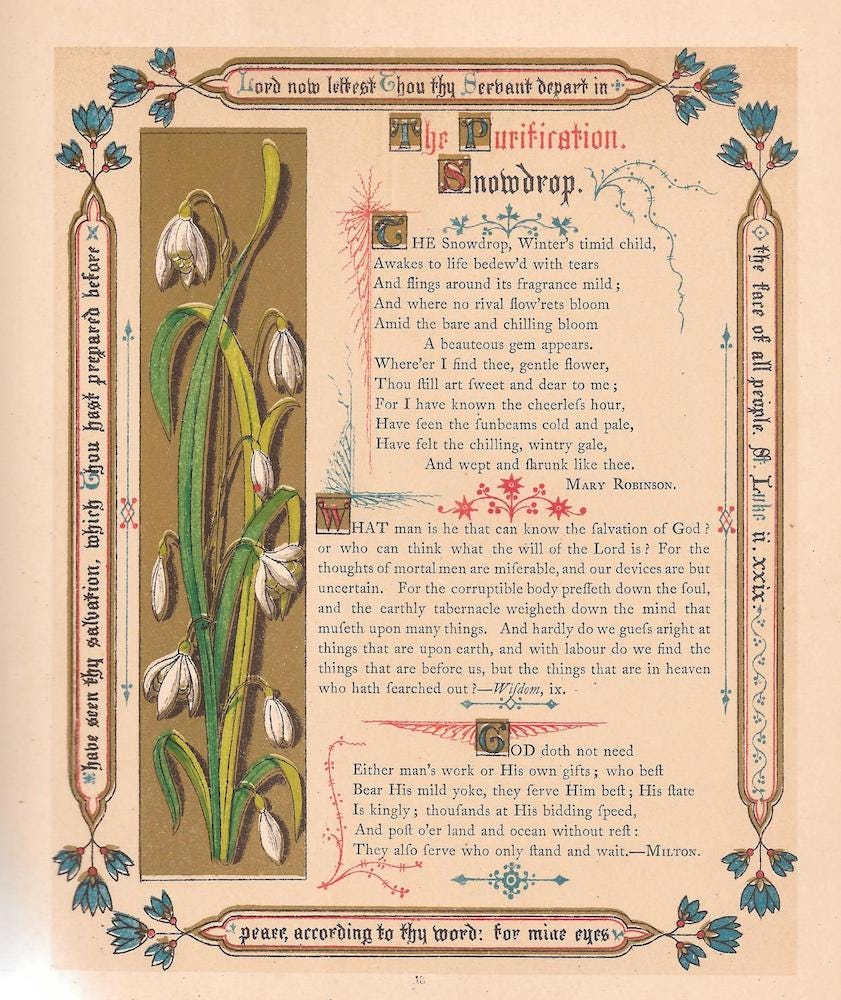 Lord now lettest Thou thy Servant depart in
peace, according to thy word: for mine eyes
have seen thy salvation, which Thou hast prepared before
the face of all people. St. Luke ii. xxix.
The Purification.
Snowdrop.
THE Snowdrop, Winter's timid child,
Awakes to life bedew'd with tears
And flings around its fragrance mild;
And where no rival flow'rets bloom
Amid the bare and chilling bloom
A beauteous gem appears.
Where'er I find thee, gentle flower,
Thou ſtill art ſweet and dear to me;
For I have known the cheerleſs hour,
Have ſeen the ſunbeams cold and pale,
Have felt the chilling, wintry gale,
And wept and ſhrunk like thee.
MARY ROBINSON.
WHAT man is he that can know the ſalvation of God?
or who can think what the will of the Lord is? For the
thoughts of mortal men are miſerable, and our devices are but
uncertain. For the corruptible body preſſeth down the ſoul,
and the earthly tabernacle weigheth down the mind that
muſeth upon many things. And hardly do we gueſs aright at
things that are upon earth, and with labour do we find the
things that are before us, but the things that are in heaven
who hath ſearched out?—Wiſdom, ix.
GOD doth not need
Either man's work or His own gifts; who beſt
Bear His mild yoke, they ſerve Him beſt; His ſtate
Is kingly; thouſands at His bidding ſpeed,
And poſt o'er land and ocean without reſt:
They alſo ſerve who only ſtand and wait.—MILTON.